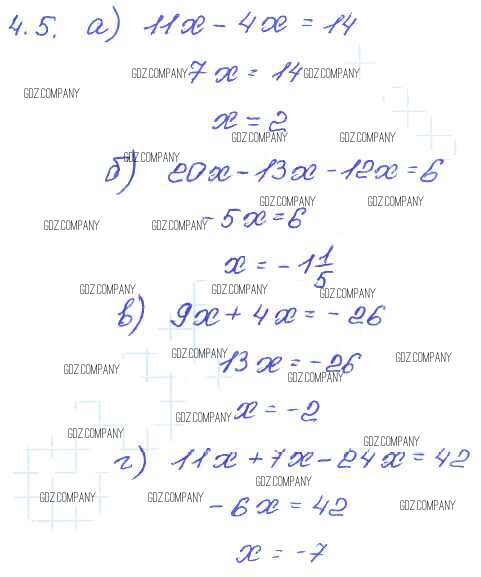 4.5. а) 11x - 4x = 14
GDZ.COMPANY 7x = 14 GDZ.COMPANY
GDZ.COMPANY
x = 2
GDZ.COMPANY GDZ.COMPANY
GDZ.COMPANY
б) 20x - 13x - 12x = 6
GDZ.COMPANY GDZ.COMPANY
GDZ.COMPANY GDZ.COMPANY - 5x = 6
x = - 1 1/5
GDZ.COMPANY GDZ.COMPANY GDZ.COMPANY
в) 9x + 4x = - 26
GDZ.COMPANY GDZ.COMPANY
GDZ.COMPANY 13x = - 26
GDZ.COMPANY
GDZ.COMPANY x = - 2
GDZ.COMPANY GDZ.COMPANY
г) 11x + 7x - 24x = 42
GDZ.COMPANY
GDZ.COMPANY GDZ.COMPANY - 6x = 42 GDZ.COMPANY
x = - 7